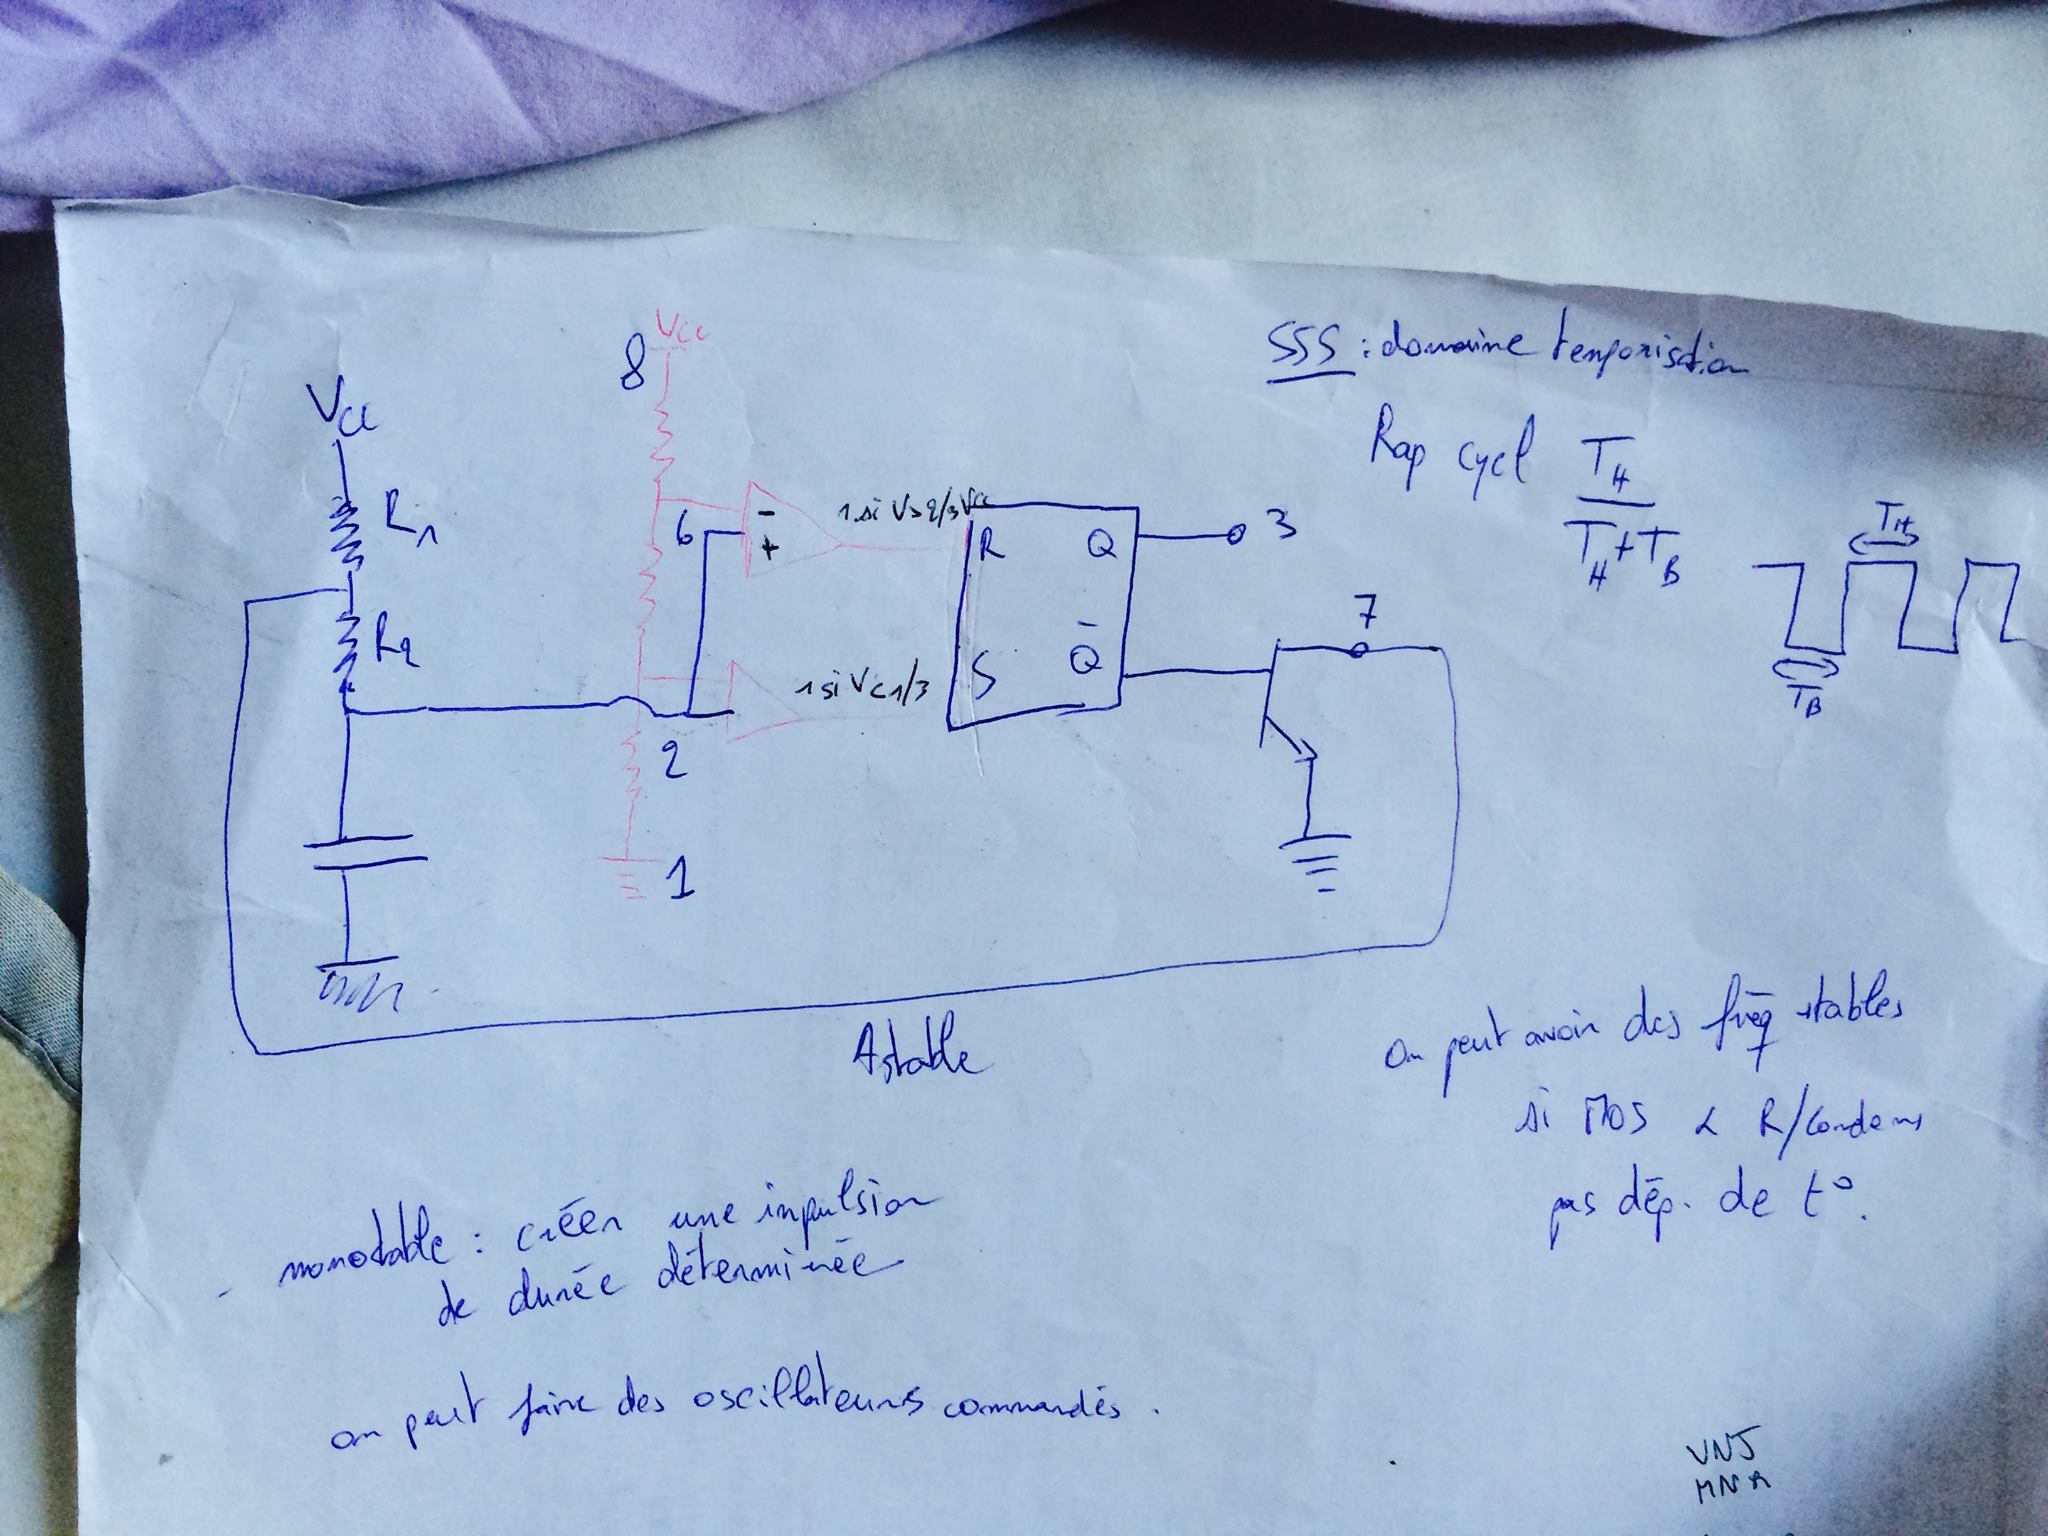 555 : domaine temporisation
Rap cycl T_H
T_H + T_B
T_H
T_B
Vcc
R1
R2
8
Vcc
6
-
+
1 si V > 2/3 Vcc
R
Q
3
7
2
1 si V < 1/3
S
Q̄
1
Astable
on peut avoir des fréq stables
si MOS & R/condens
pas dép. de t°.
monostable : créer une impulsion
de durée déterminée
on peut faire des oscillateurs commandés.